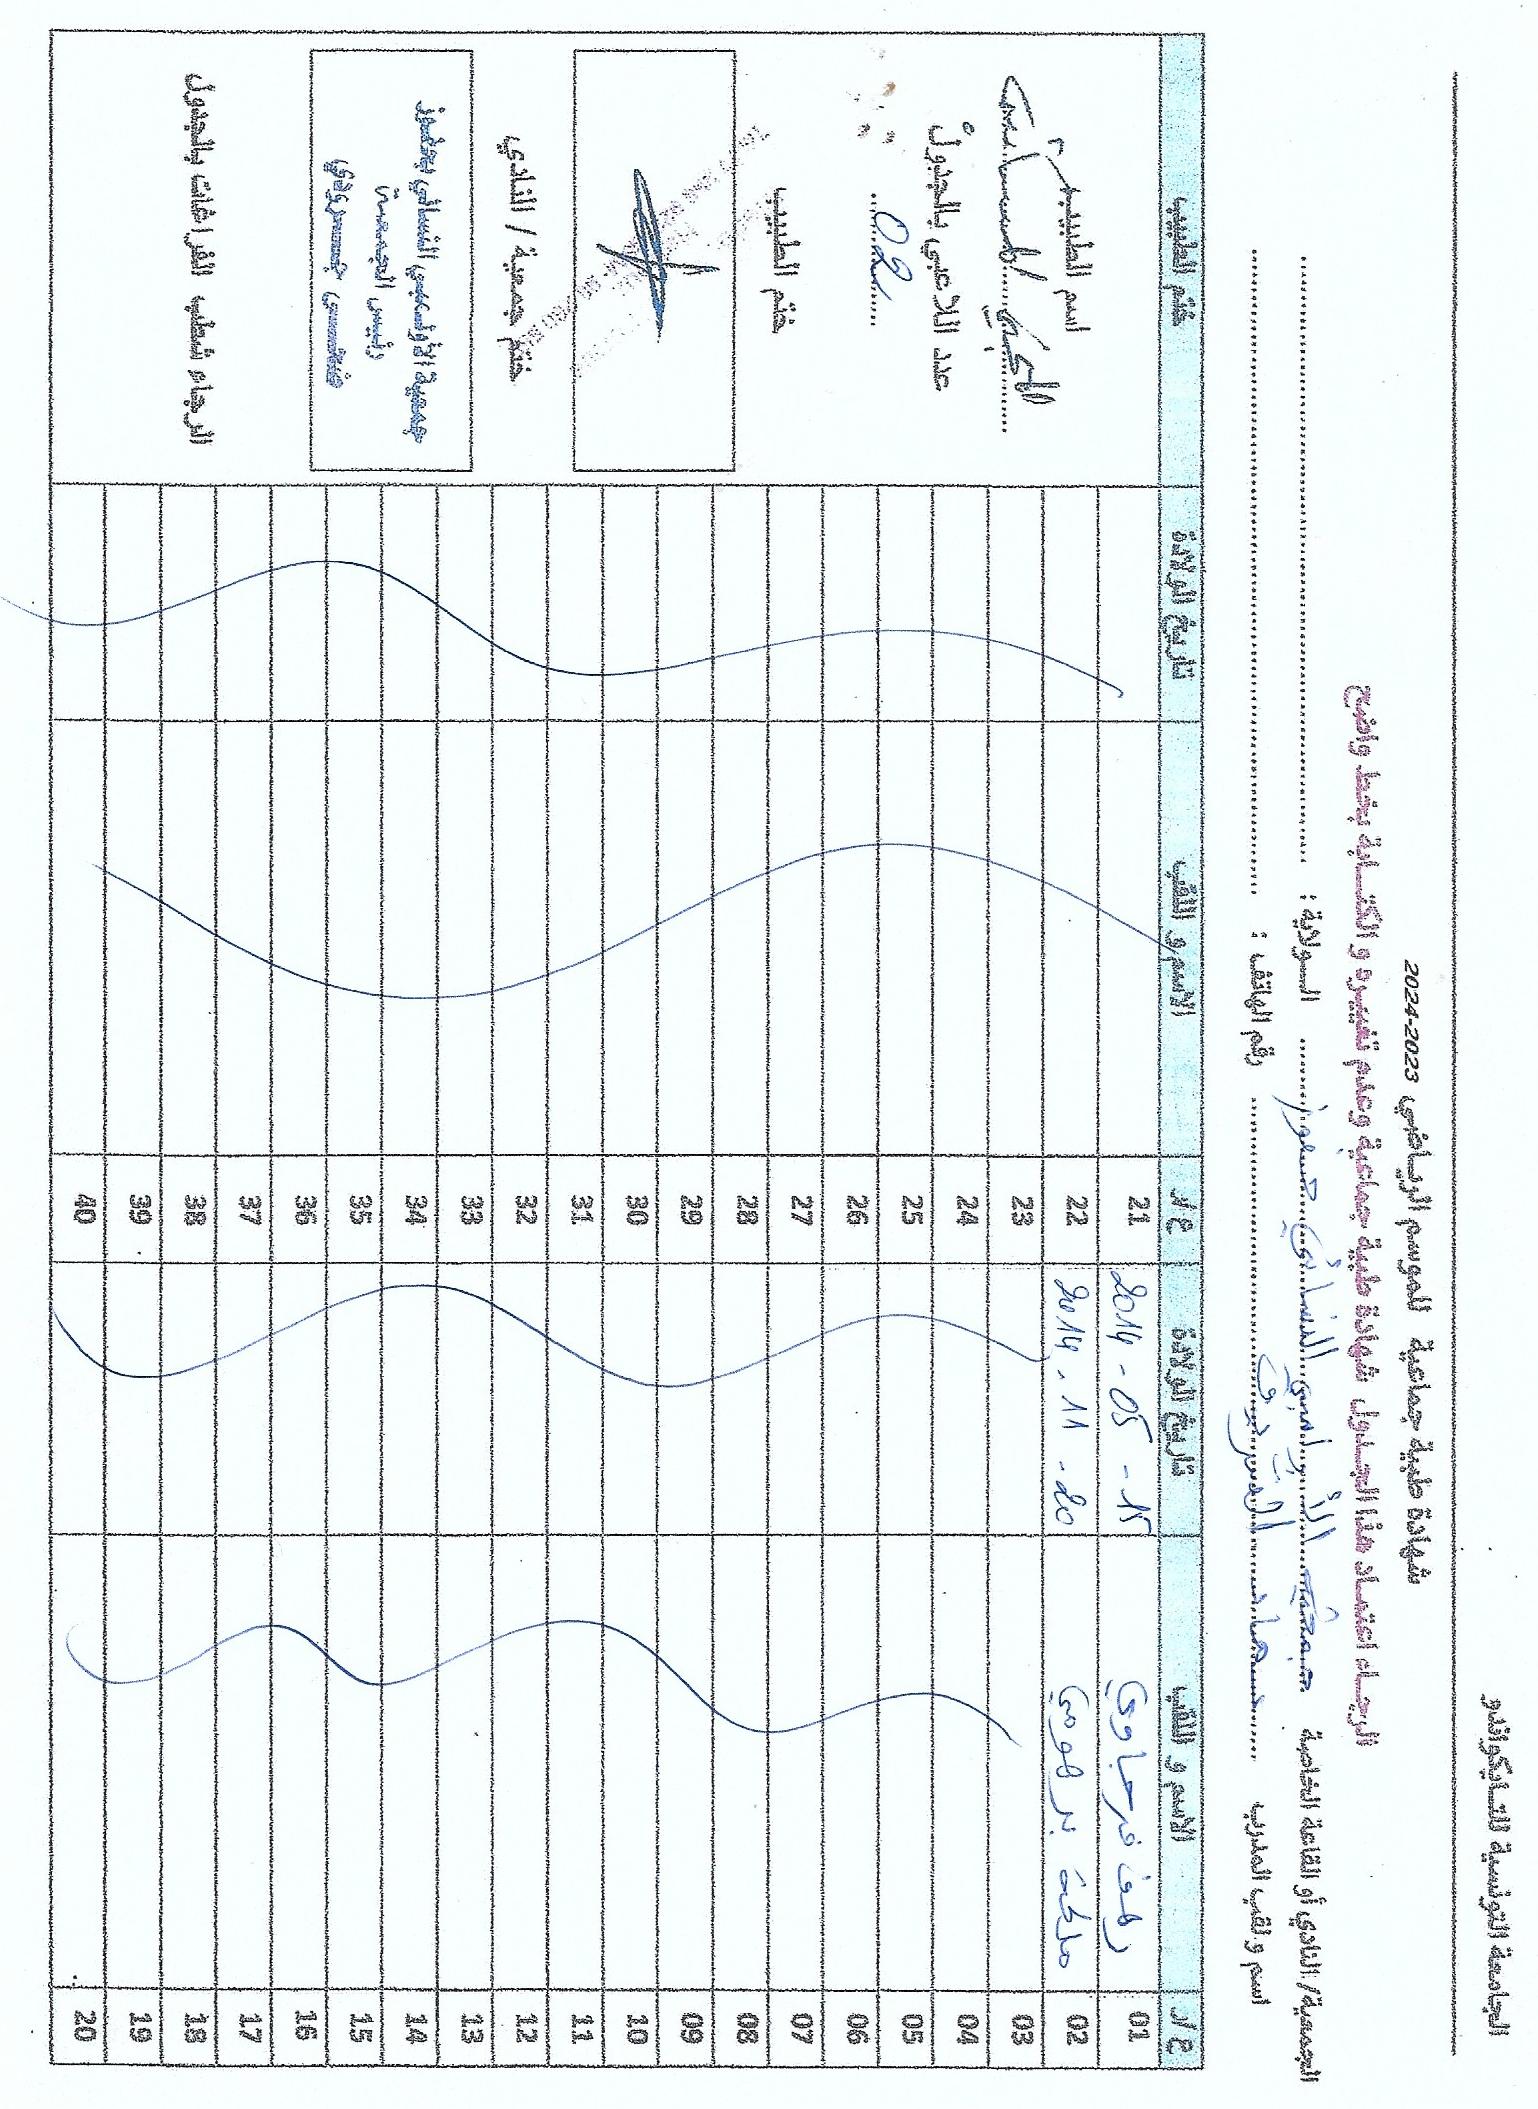 الجامعة التونسية للتايكواندو
شهادة طبية جماعية للموسم الرياضي 2023-2024
الرجاء اعتماد هذا الجدول شهادة طبية جماعية وعدم تغييره و الكتابة بخط واضح
الجمعية/ النادي أو القاعة الخاصة جمعية الأولمبي النسائي بعفوز الولاية :
اسم و لقب المدرب رقم الهاتف :
ع/ر الاسم و اللقب تاريخ الولادة ع/ر الاسم و اللقب تاريخ الولادة ختم الطبيب
01 رهف فرجاوي 15 - 05 - 2014 21
02 ملكة برهومي 20 - 11 - 2014 22
03 23
04 24
05 25
06 26
07 27
08 28
09 29
10 30
11 31
12 32
13 33
14 34
15 35
16 36
17 37
18 38
19 39
20 40
اسم الطبيب
عدد اللاعبي بالجدول
02
ختم الطبيب
ختم جمعية / النادي
جمعية الأولمبي النسائي بعفوز
رئيس الجمعية
الرجاء شطب الفراغات بالجدول